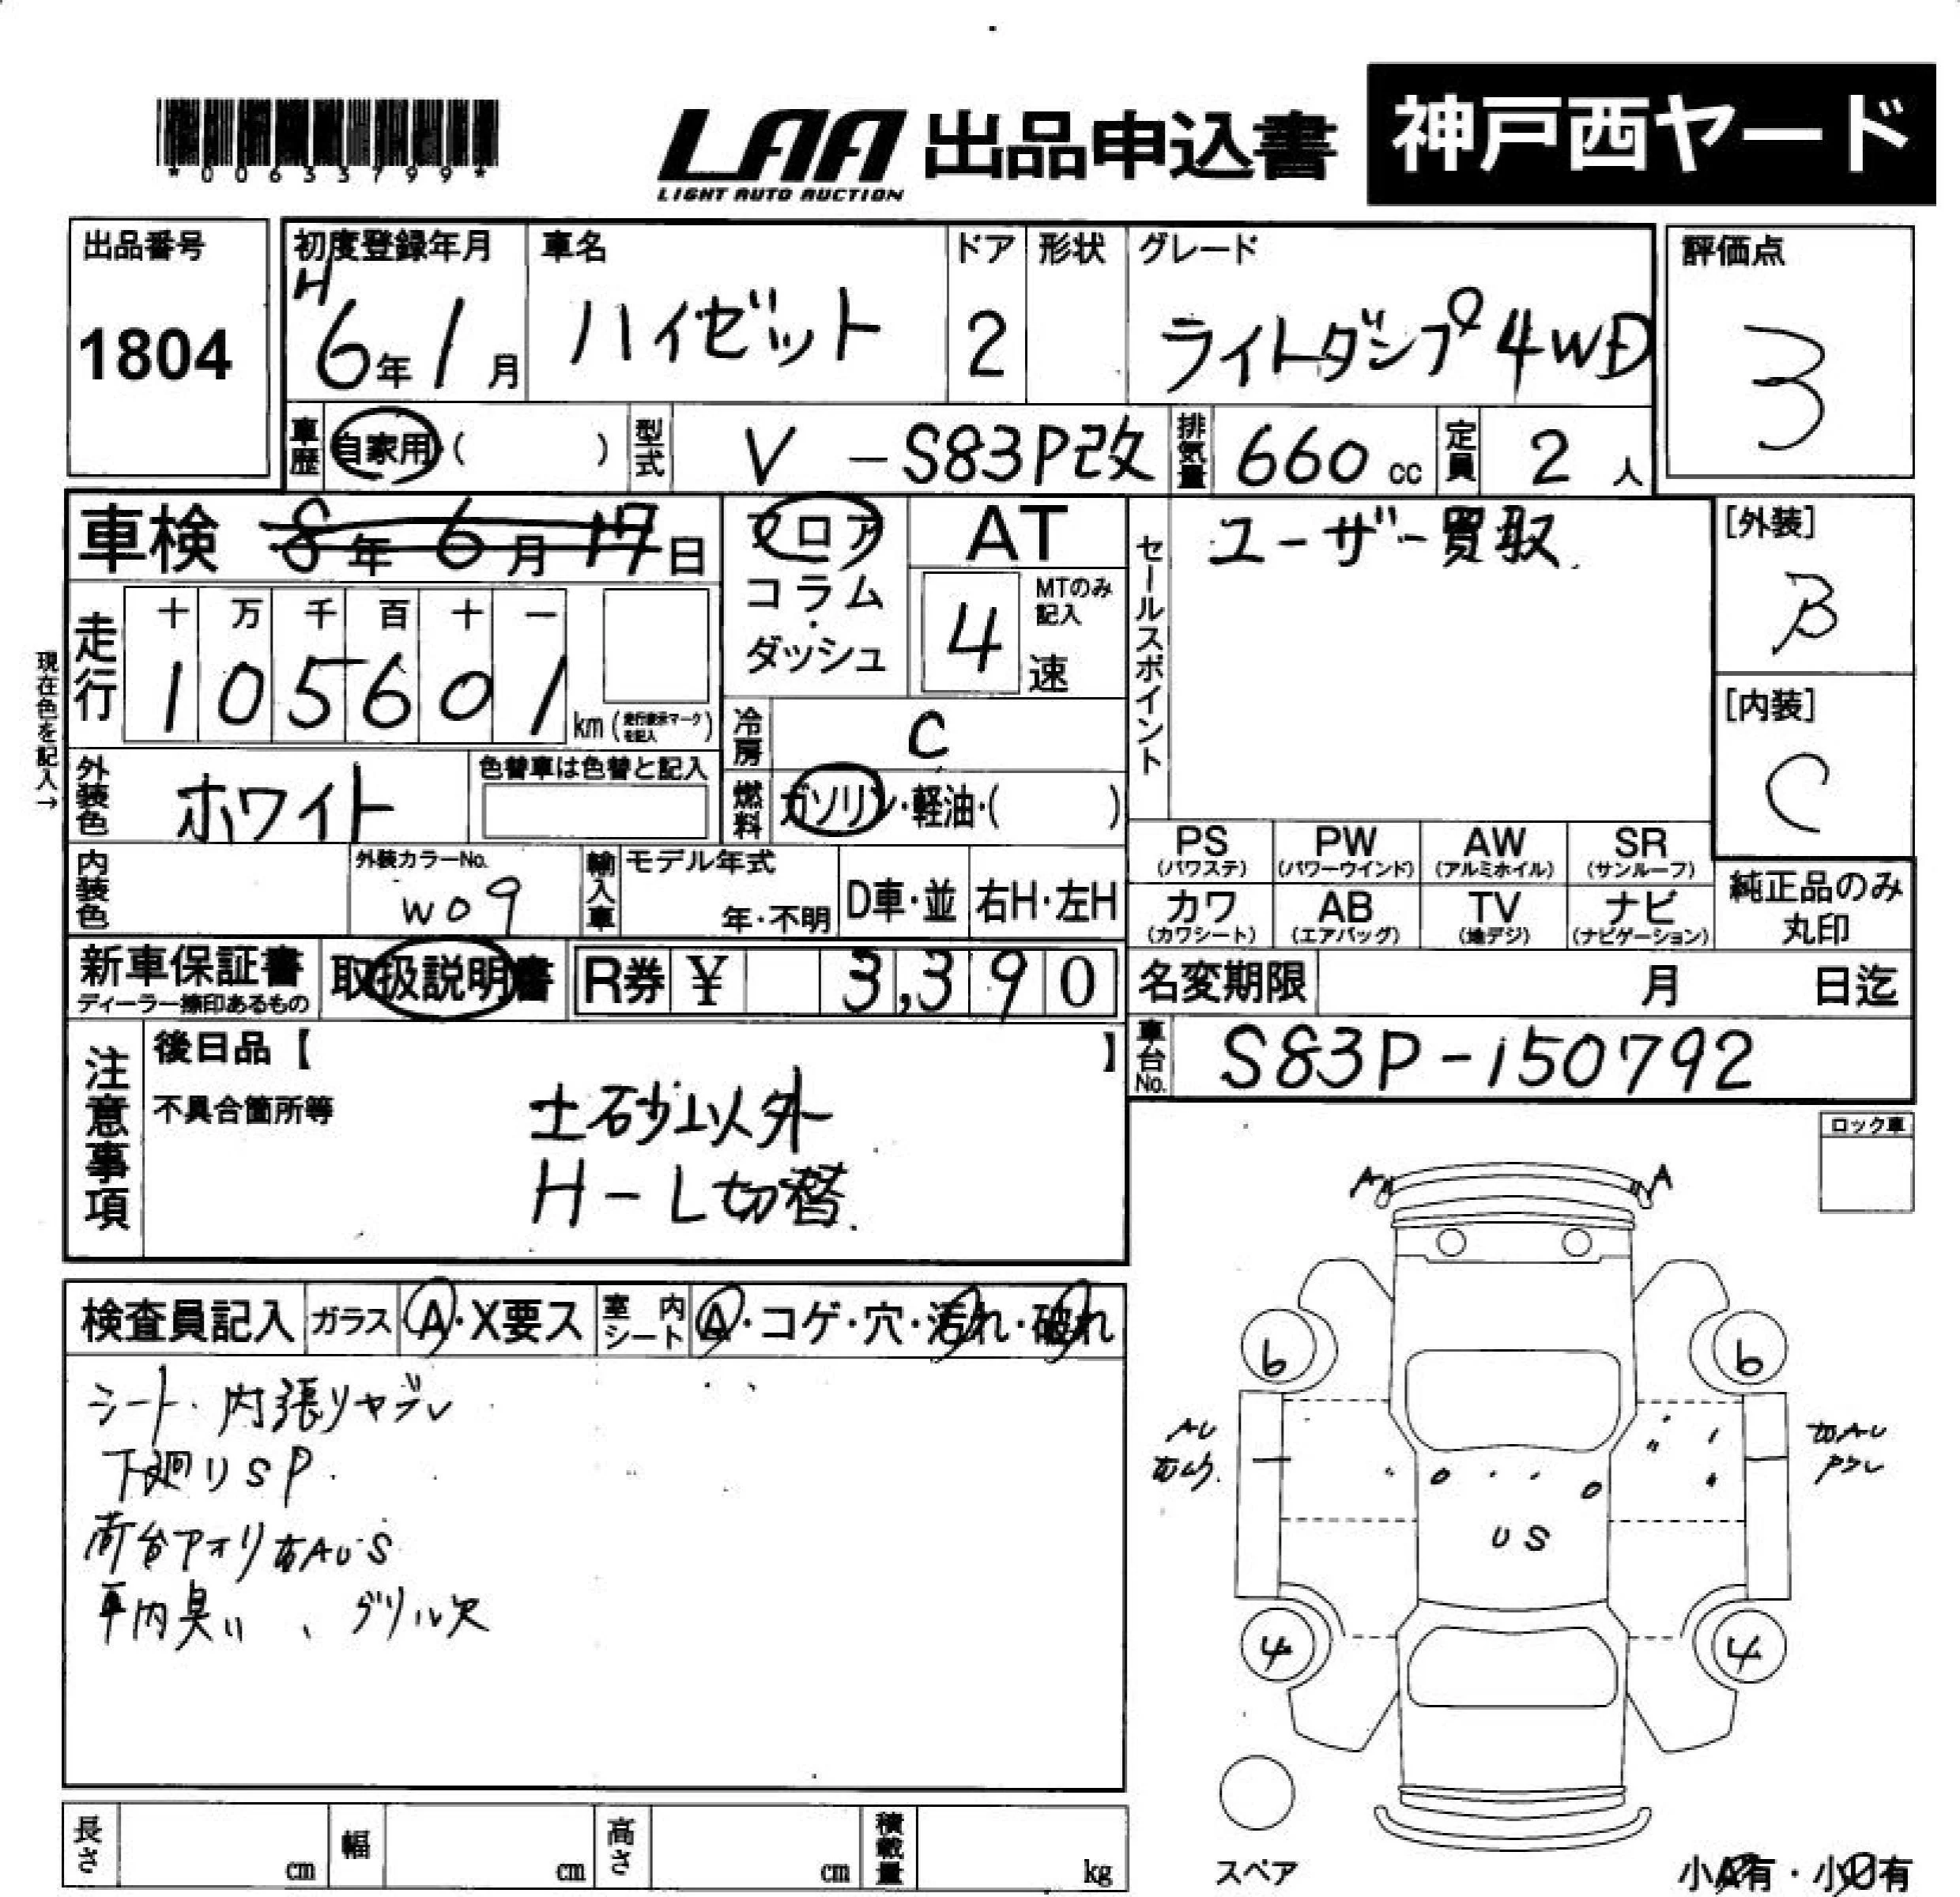 *00633799*
LAA 出品申込書 神戸西ヤード
LIGHT AUTO AUCTION
出品番号 初度登録年月 車名 ドア 形状 グレード 評価点
1804 H6年1月 ハイゼット 2 ライトダンプ 4WD 3
車歴 自家用・( ) 型式 V-S83P改 排気量 660cc 定員 2人
車検 8年6月17日 フロア AT セールスポイント ユーザー買取 [外装]
コラム・ダッシュ 4速 MTのみ記入 B
現在色を記入→
走行 十万千百十一
105601 km (走行表示マークを記入) [内装]
冷房 C C
外装色 ホワイト 色替車は色替と記入 燃料 ガソリン・軽油・( )
PS (パワステ) PW (パワーウインド) AW (アルミホイル) SR (サンルーフ)
内装色 外装カラーNo. W09 輸入車 モデル年式 年・不明 D車・並 右H・左H
カワ (カワシート) AB (エアバッグ) TV (地デジ) ナビ (ナビゲーション) 純正品のみ丸印
新車保証書 ディーラー捺印あるもの 取扱説明書 R券 ¥ 3,390 名変期限 月 日迄
注意事項 後日品【 】 車台No. S83P-150792
不具合箇所等 土砂以外
H-L切替
ロック車
A A
検査員記入 ガラス A・X要ス 室内シート A・コゲ・穴・汚れ・破れ
シート・内張リヤブレ
下廻りSP
荷台アオリ右AUS
車内臭い、グリル欠
6 6
AU
US
4 4
長さ cm 幅 cm 高さ cm 積載量 kg
スペア 小A有・小U有